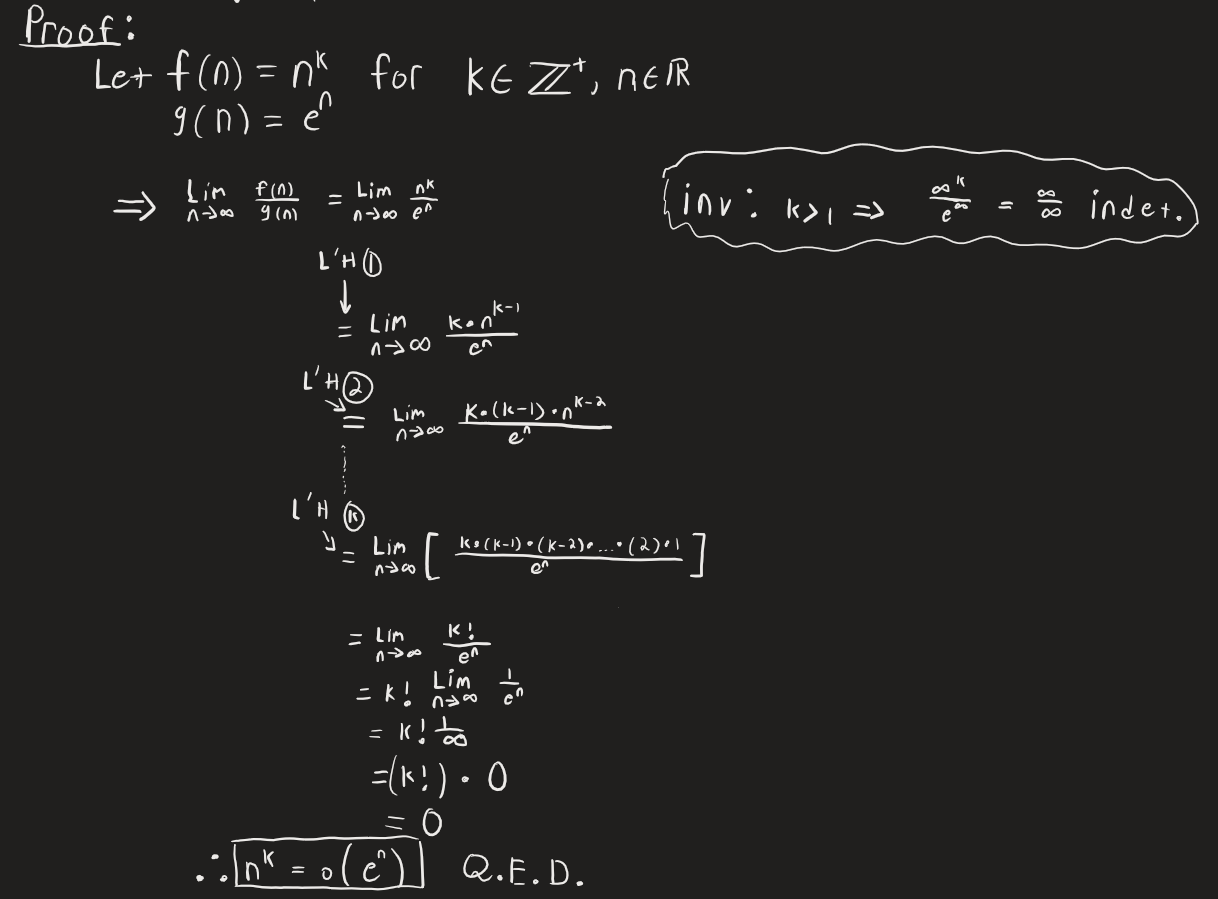 Proof:
Let f(n) = n^k for k ∈ ℤ⁺, n ∈ ℝ
g(n) = e^n
⇒ Lim_{n→∞} f(n)/g(n) = Lim_{n→∞} n^k/e^n
inv: k>1 ⇒ ∞^k/e^∞ = ∞/∞ indet.
L'H ①
↓
= Lim_{n→∞} k•n^{k-1}/e^n
L'H ②
= Lim_{n→∞} k•(k-1)•n^{k-2}/e^n
L'H ⓚ
= Lim_{n→∞} [ k•(k-1)•(k-2)•...•(2)•1/e^n ]
= Lim_{n→∞} k!/e^n
= k! Lim_{n→∞} 1/e^n
= k! 1/∞
= (k!) • 0
= 0
∴ n^k = o(e^n) Q.E.D.